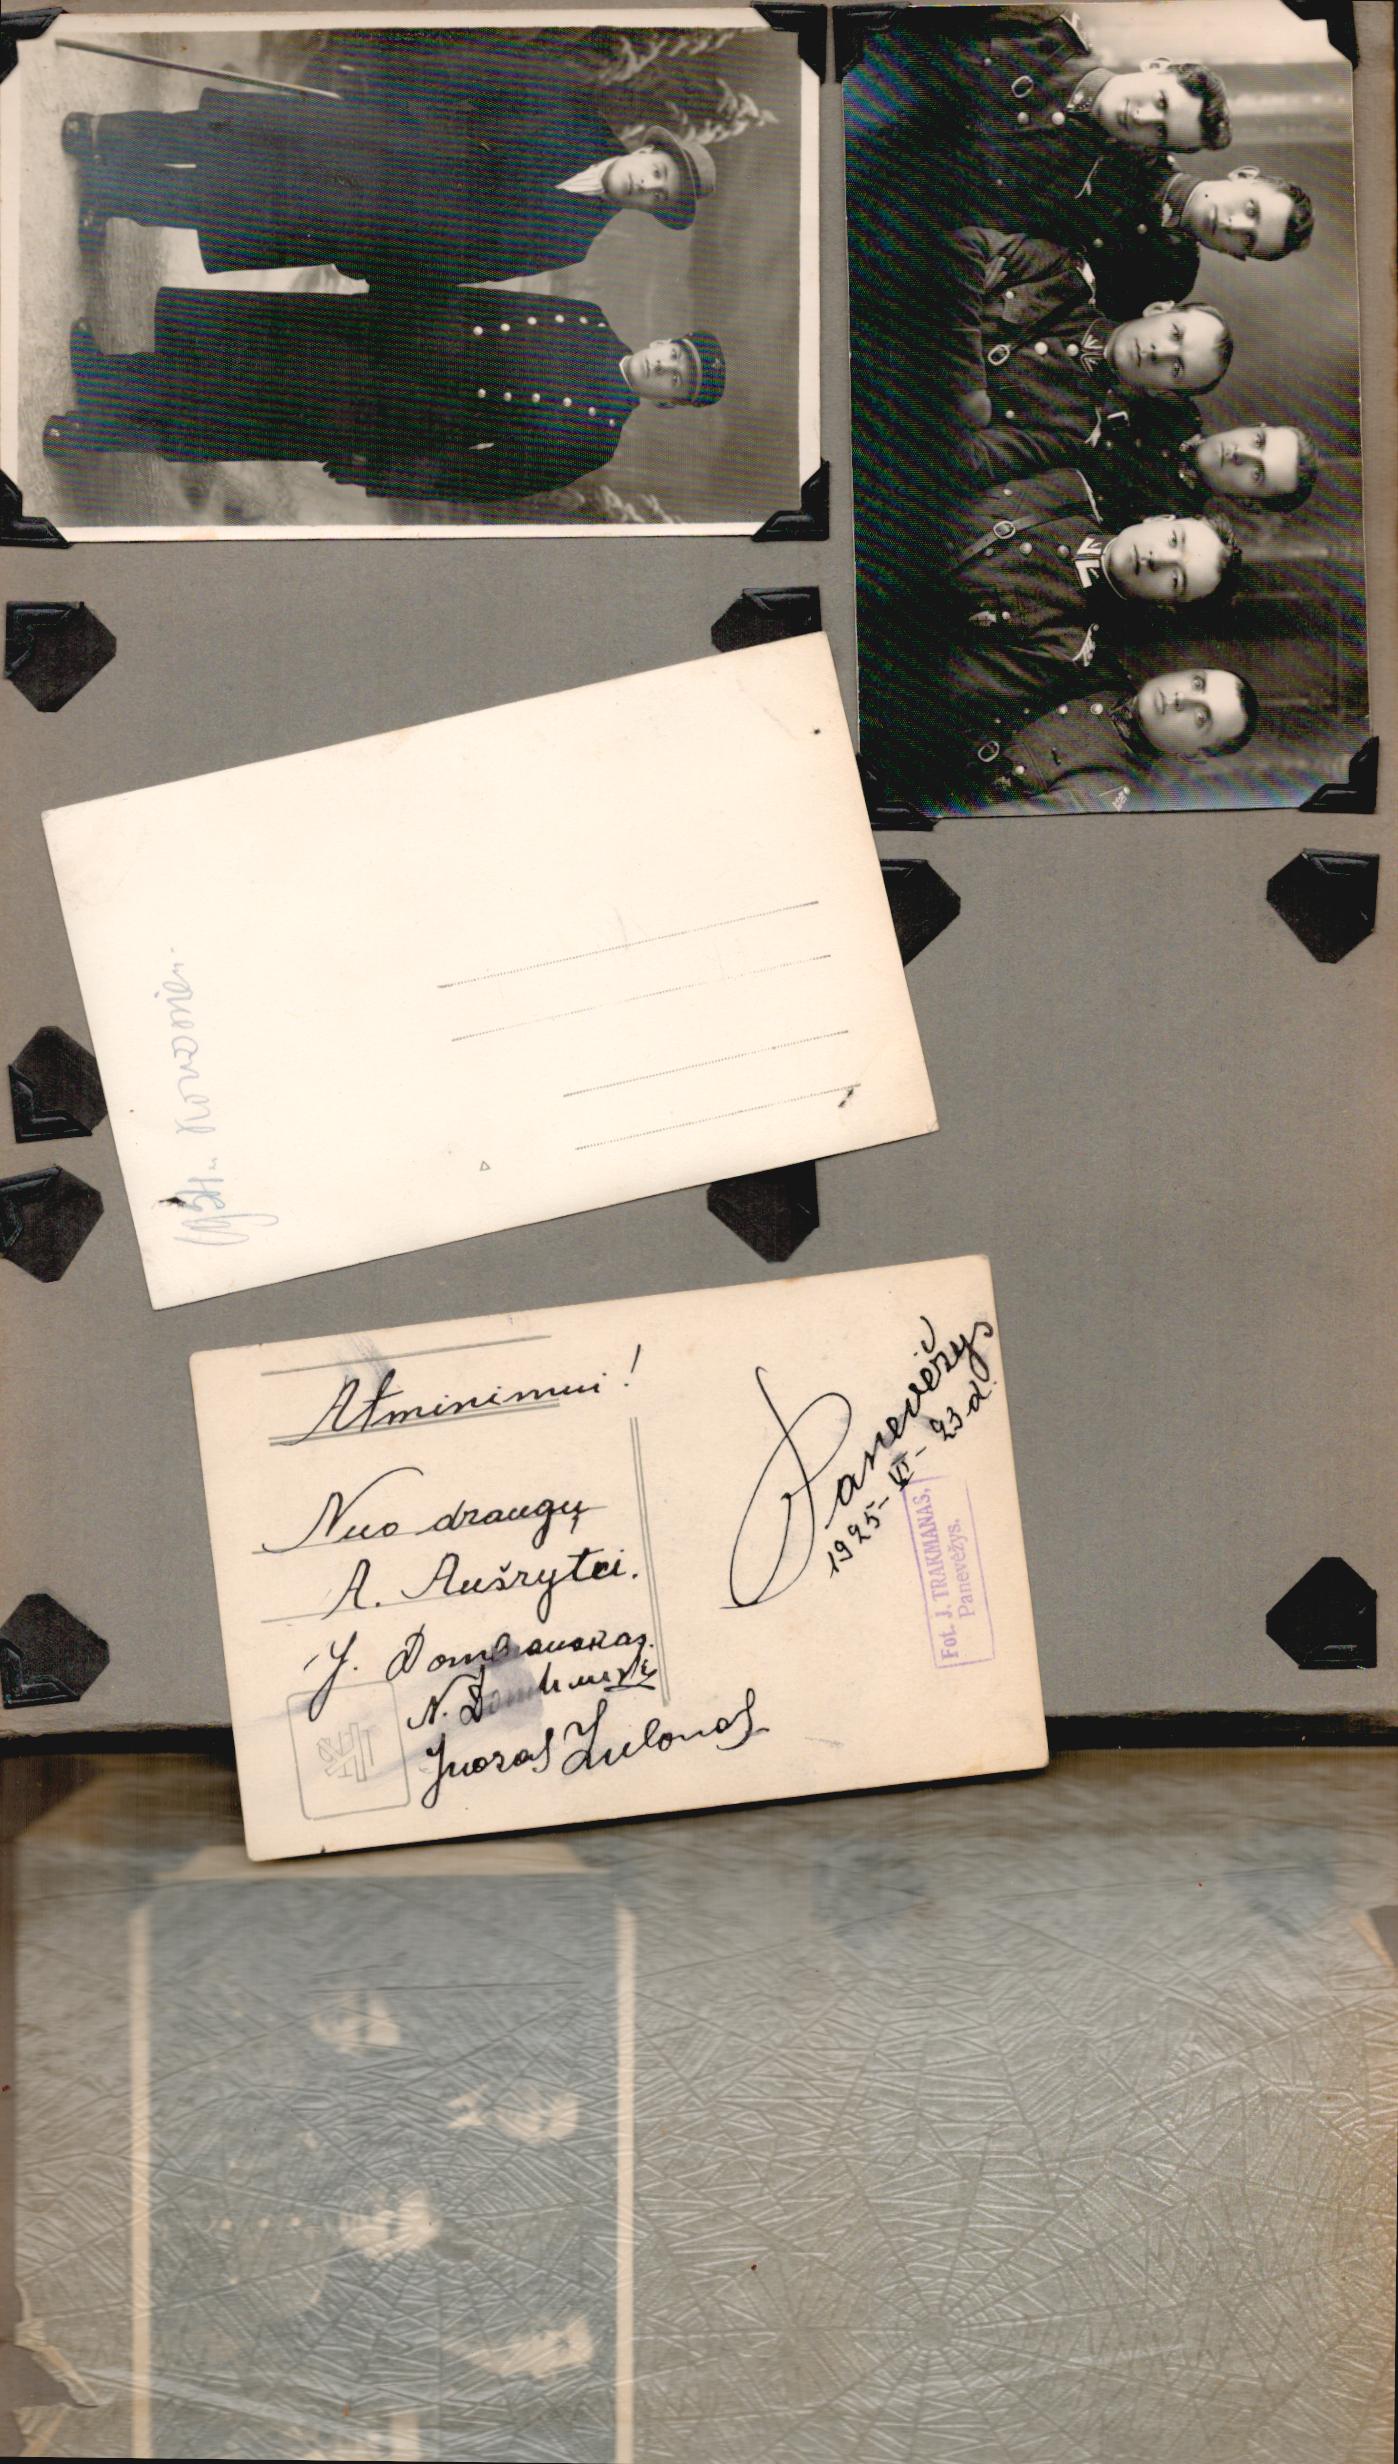 Atminimui!
Nuo draugų
A. Aušrytei.
J. Dombrauskas.
N.
Juozas Zulonas
Panevėžys
1925-VI-23 d.
Fot. J. TRAKMANAS,
Panevėžys.